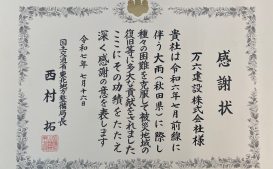 感謝状
万六建設株式会社様
貴社は令和六年七月前線に
伴う大雨（秋田県）に際し
種々の困難を克服して被災地域の
復旧等に多大な貢献をされました
ここにその功績をたたえ
深く感謝の意を表します
令和七年七月十六日
国土交通省東北地方整備局長
西村　拓